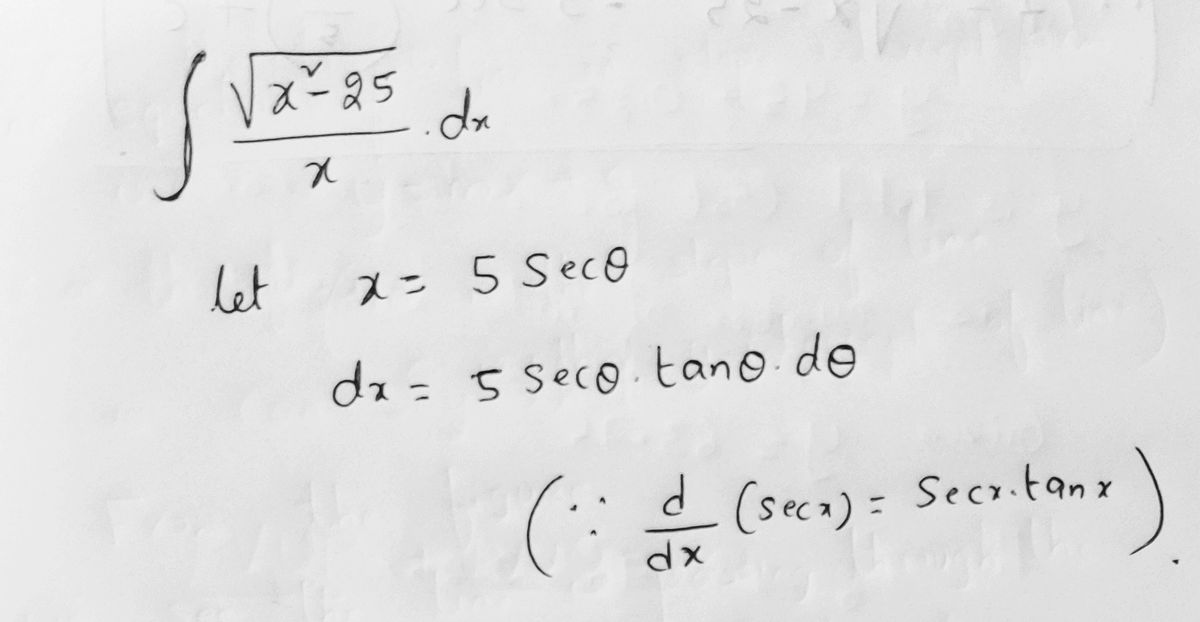 ∫ √(x² - 25) / x . dx
let x = 5 Secθ
dx = 5 Secθ . tanθ . dθ
(∵ d/dx (secx) = Secx . tanx).